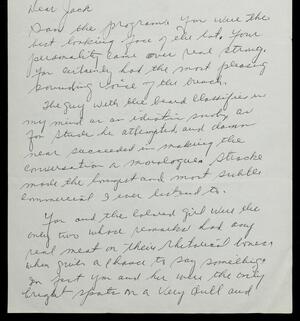 Dear Jack
Saw the program. You were the
best looking face of the lot. Your
personality came over real strong.
You certainly had the most pleasing
sounding voice of the bunch.
The guy with the beard classifies in
my mind as an idiotic snob as
for Stude he attempted and damn
near succeeded in making the
conversation a monologue.
made the longest and most subtle
commercial I ever listened to.
You and the colored girl were the
only two whose remarks had any
real meat on their rhetorical bones
when given a chance to say something.
In fact you and her were the only
bright spots on a very dull and